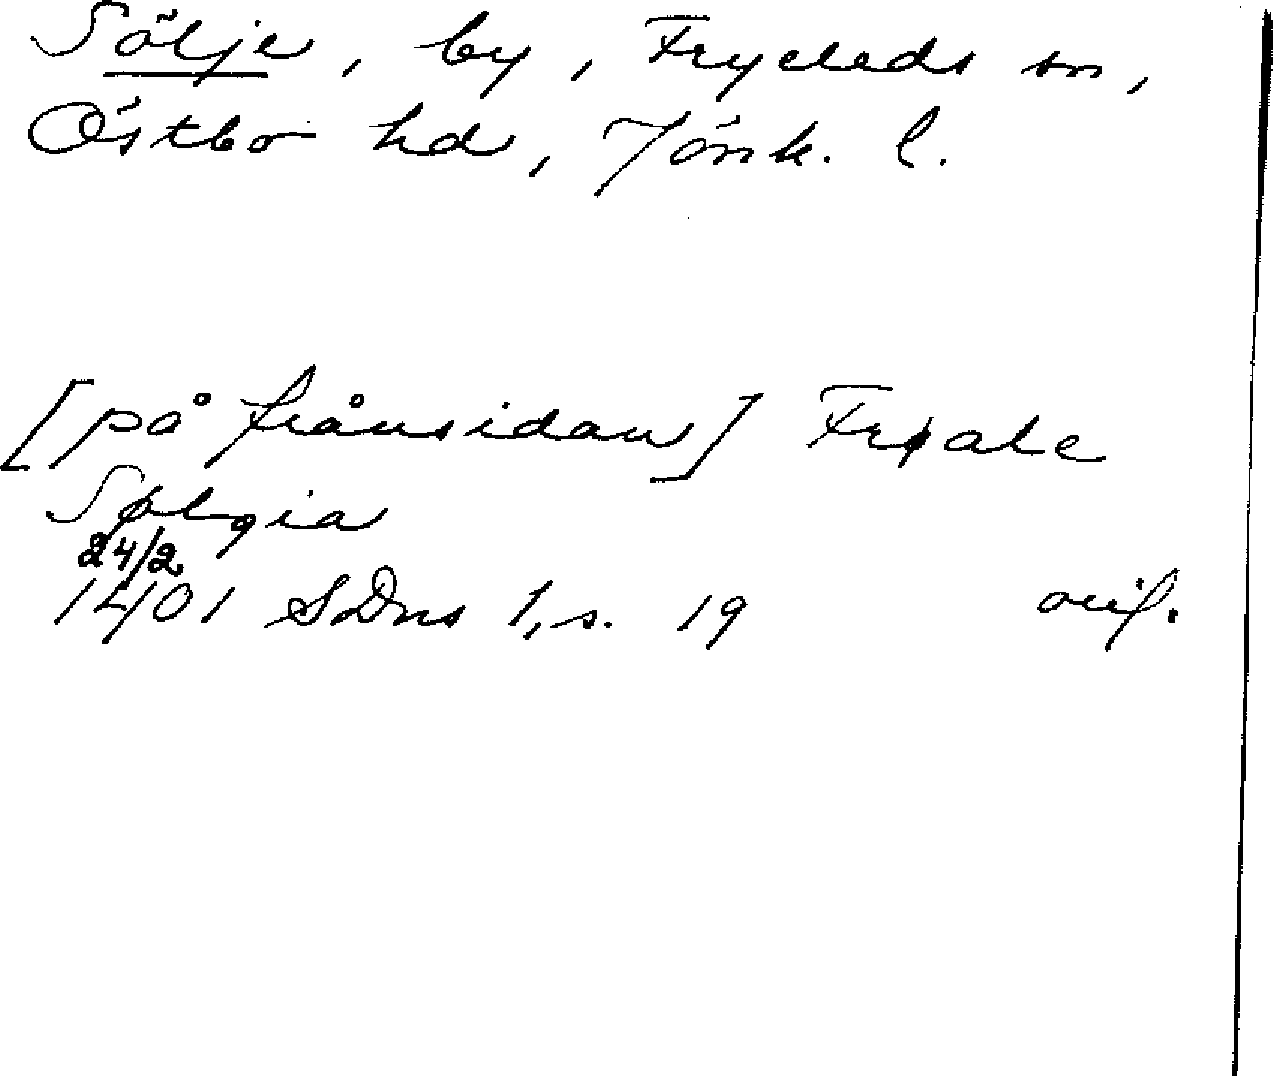 Sölje, by, Fryeleds sn,
Östbo hd, Jönk. l.
[på frånsidan] Frøale
Sølgia
24/2
1401 SDns 1, s. 19 orig.